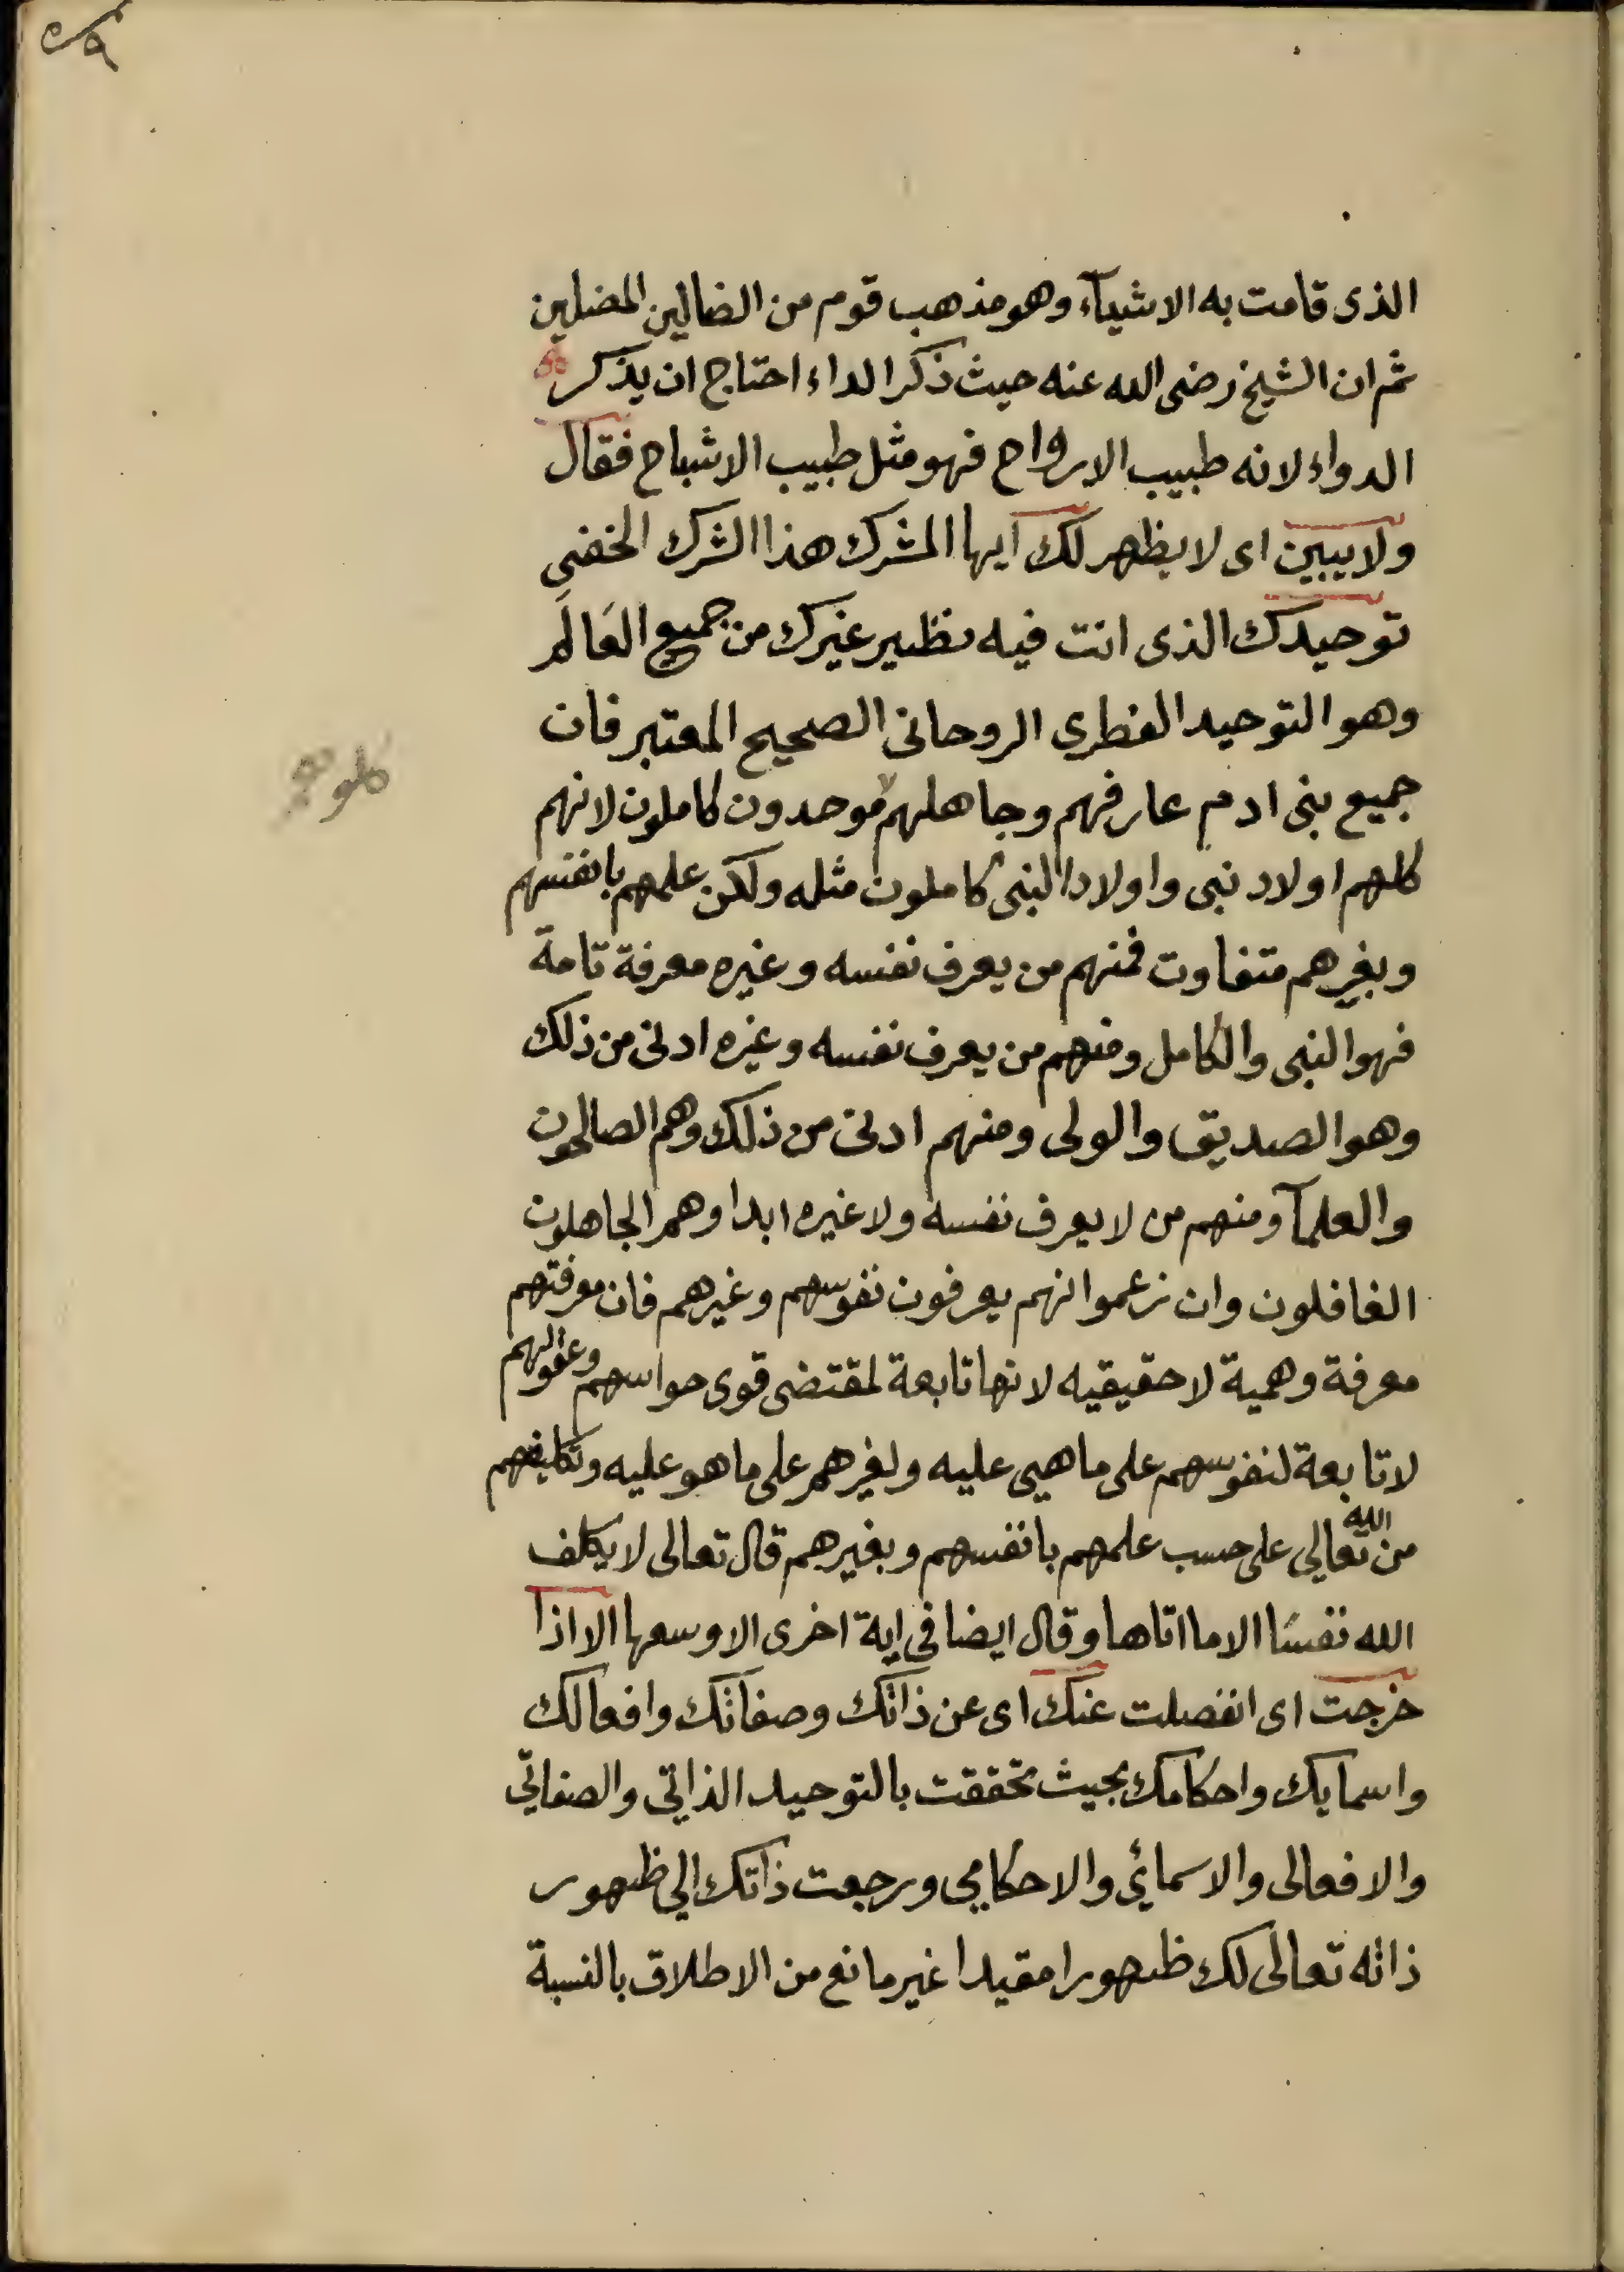 الذى قامت به الاشيآء وهو مذهب قوم من الضالين المضلين
ثم ان الشيخ رضى الله عنه حيث ذكر الداء احتاج ان يذكر
الدواء لانه طبيب الارواح فهو مثل طبيب الاشباح فقال
ولا يبين اى لا يظهر لك ايها المشرك هذا الشرك الخفى
توحيدك الذى انت فيه نظير غيرك من جميع العَالَم
وهو التوحيد الفطرى الروحانى الصحيح المعتبر فان
جميع بنى ادم عارفهم وجاهلهم موحدون كاملون لانهم
كلهم اولاد نبى واولاد النبى كاملون مثله ولكن علمهم بانفسهم
وبغيرهم متفاوت فمنهم من يعرف نفسه وغيره معرفة تامة
فهو النبى والكامل ومنهم من يعرف نفسه وغيره ادنى من ذلك
وهو الصديق والولى ومنهم ادنى من ذلك وهم الصالحون
والعلمآ ومنهم من لا يعرف نفسه ولا غيره ابدا وهم الجاهلون
الغافلون وان زعموا انهم يعرفون نفوسهم وغيرهم فان معرفتهم
معرفة وهمية لا حقيقيه لانها تابعة لمقتضى قوى حواسهم وعقولهم
لا تابعة لنفوسهم على ما هى عليه ولغيرهم على ما هو عليه وتكليفهم
من الله تعالى على حسب علمهم بانفسهم وبغيرهم قال تعالى لا يكلف
الله نفسًا الا ما اتاها وقال ايضا فى اية اخرى الا وسعها الا اذا
خرجت اى انفصلت عنك اى عن ذاتك وصفاتك وافعالك
واسمايك واحكامك بحيث تحققت بالتوحيد الذاتى والصفاتى
والافعالى والاسمائى والاحكامى ورجعت ذاتك الى ظهور
ذاته تعالى لك ظهورا مقيدا غير مانع من الاطلاق بالنسبة